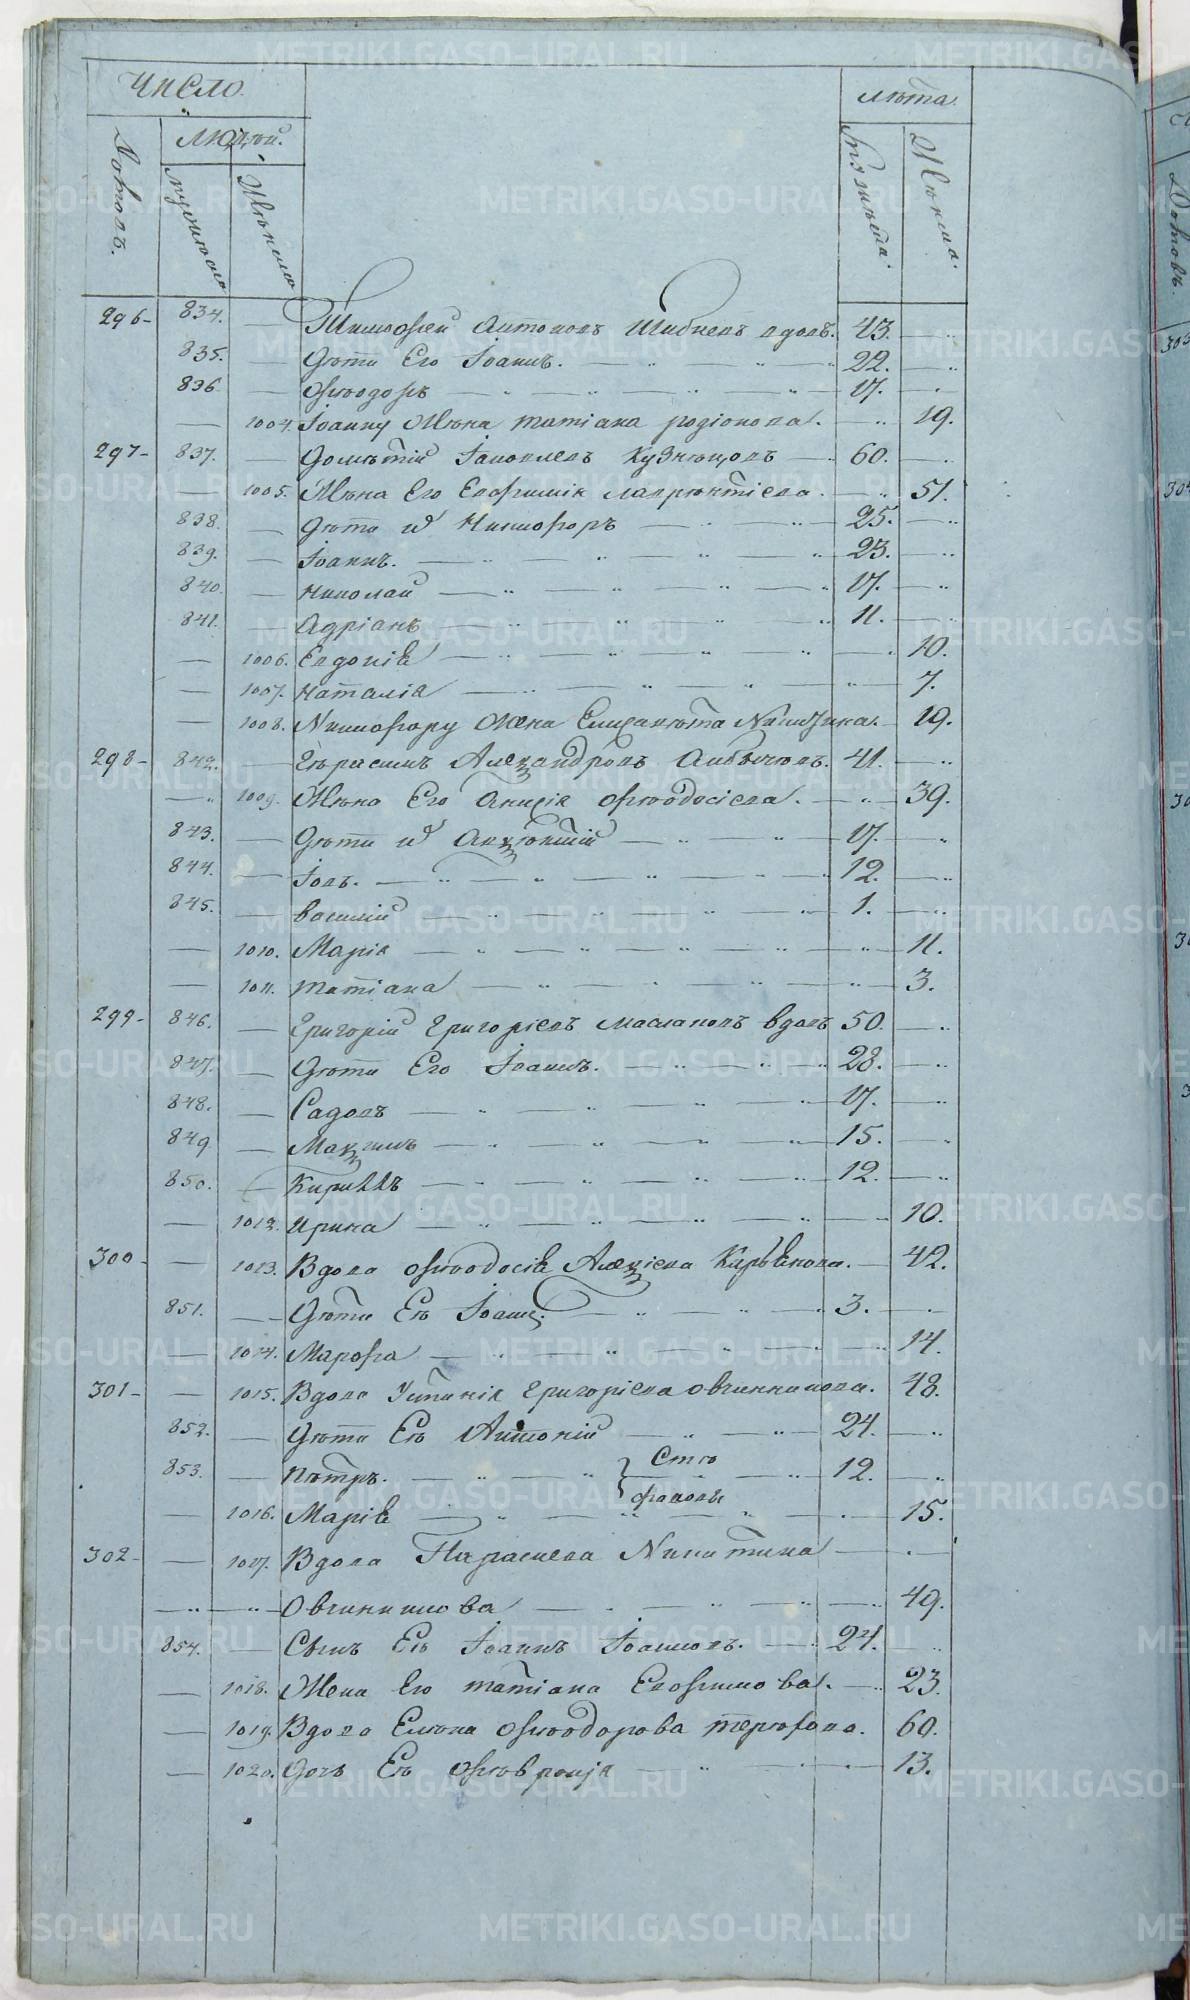 Число
людей.
лѣта
Домовъ.
мужеска
женска
мужеска.
женска.
296- 834. — Тимофей Антоновъ Шибневъ вдовъ. 43. —
835. — Дѣти Его Іоаннъ. — 22. —
836 — Ѳеодоръ — 17. —
— 1004. Іоанну Жена татіана родіонова. — 19.
297- 837. — Дометій Іаковлевъ Кузнецовъ — 60. —
— 1005. Жена Его Евфимія лаврентіева. — 51.
838. — Дѣти их Никифоръ — 25. —
839. — Іоаннъ. — 23. —
840. — николай — 17. —
841. — Адріанъ — 11. —
— 1006. Евдокія — 10.
— 1007. наталія — 7.
— 1008. Никифору Жена Елисавета Никитина. — 19.
298- 842. — Герасимъ Алеѯандровъ 41. —
— 1009. Жена Его Анисія Ѳеодосіева. — 39.
843. — Дѣти их Авѯентій — 17. —
844. — Іовъ. — 12. —
845. — василій — 1. —
— 1010. Марія — 11.
— 1011. татіана — 3.
299- 846. — Григорій Григоріевъ Маслаковъ вдовъ 50. —
847. — Дѣти Его Іоаннъ. — 28. —
848. — Савва — 17. —
849 — Маѯимъ — 15. —
850. — Кириллъ — 12. —
— 1012. ирина — 10.
300- — 1013. Вдова Ѳеодосія Алеѯіева — 42.
851. — Дѣти Еѣ Іоаннъ. — 3. —
— 1014. Марфа — 14.
301- — 1015. Вдова Устинія Григоріева овчинникова. 48.
852. — Дѣти Еѣ Антоній — 24. —
853. — петръ. — Сте — 12. —
фановы
— 1016. Марія — 15.
302- — 1017. Вдова Параскева Никитина —
— Овчинникова — 49.
854. — Сынъ Еѣ Іоаннъ Іоанновъ. — 24.
— 1018. Жена Его татіана Евфимова. — 23.
— 1019. Вдова Елена Ѳеодорова терехова. 60.
— 1020. Дочь Еѣ Ѳевронія — 13.
METRIKI.GASO-URAL.RU